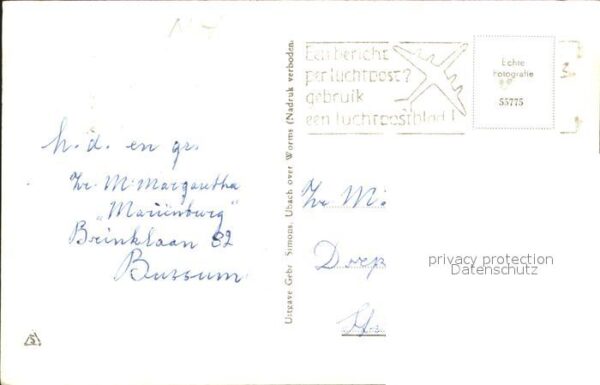 h. d. en gr.
Zr. M. Margaretha
"Mariënburg"
Brinklaan 82
Bussum
5
Uitgave Gebr. Simons, Ubach over Worms (Nadruk verboden.
Een bericht
per luchtpost?
gebruik
een luchtpostblad!
Echte
Fotografie
55775
Zr M:
Dorp
privacy protection
Datenschutz